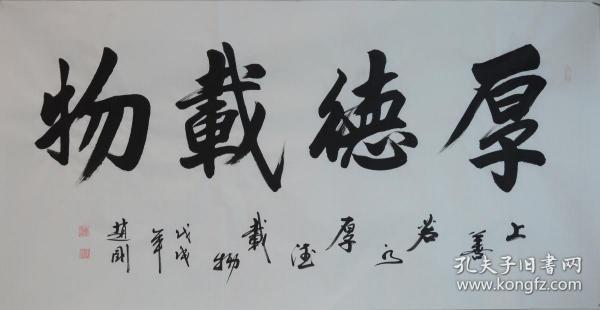 厚德載物
上善若水厚德載物
戊戌年
趙剛
孔夫子旧书网
www.kongfz.com